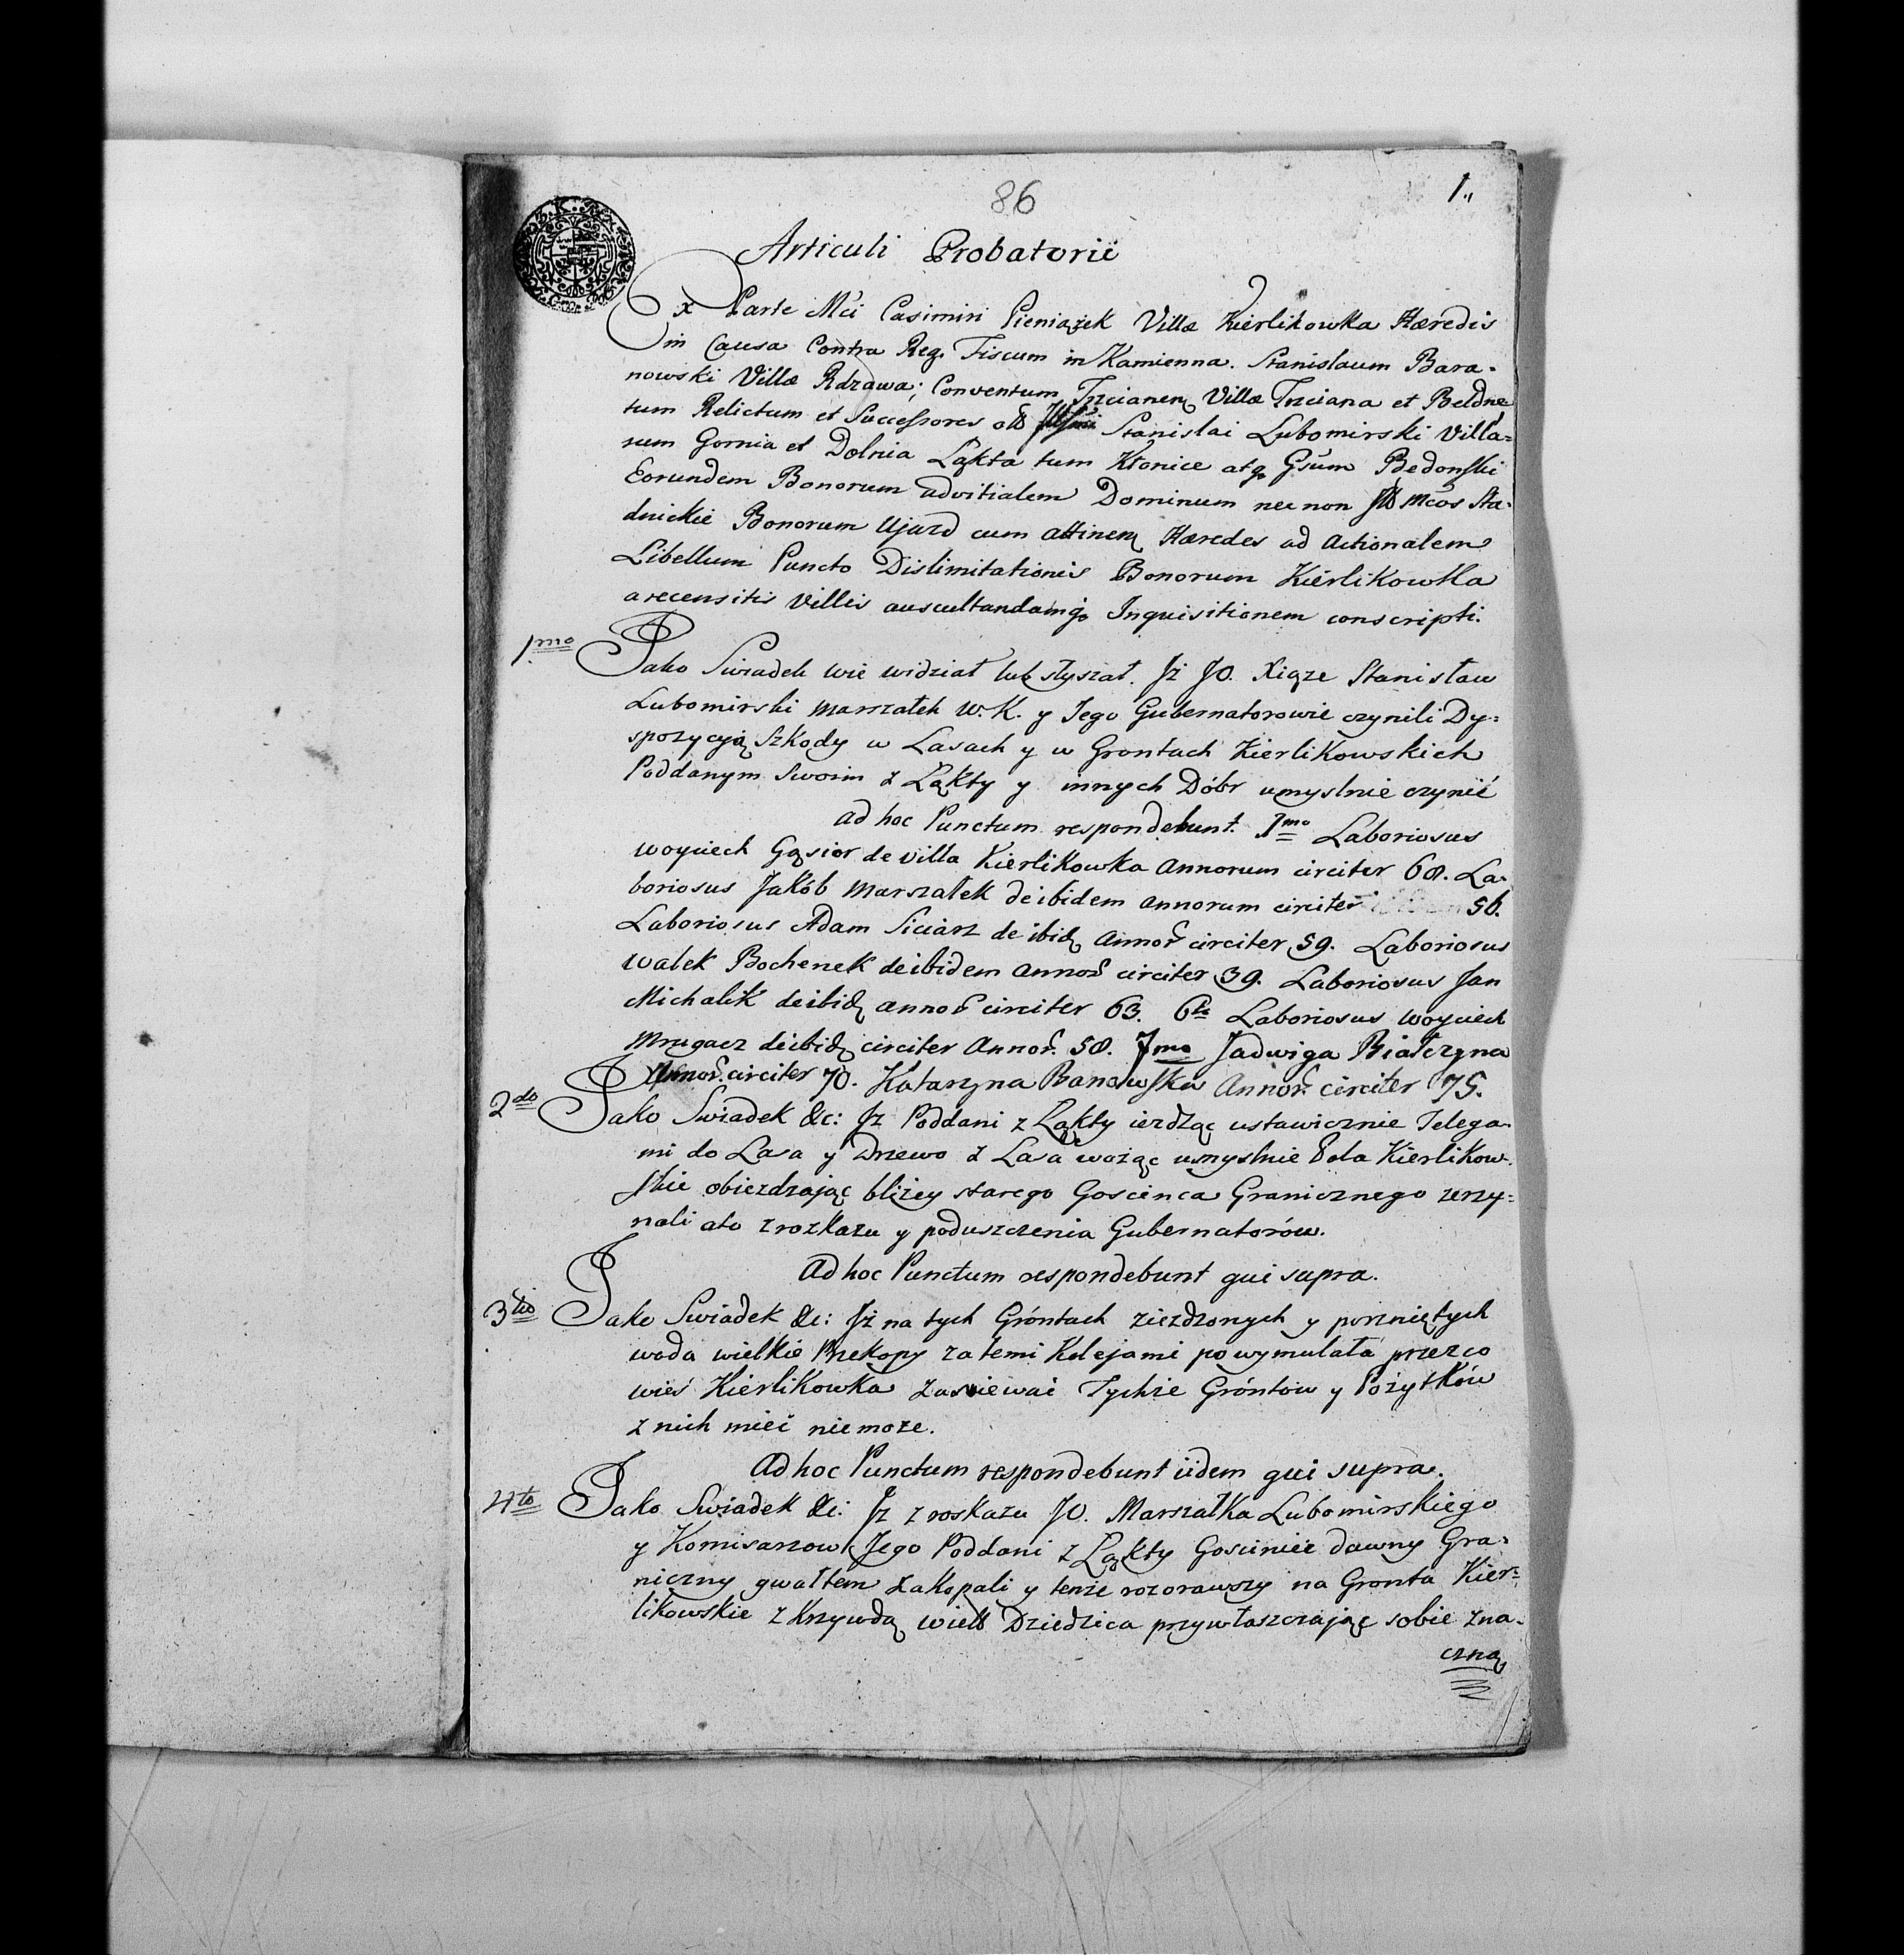 86
1.
Articuli Probatorii
Ex Parte Mci Casimiri Pieniążek Villæ Kierlikowka Hæredis
in Causa Contra Reg. Fiscum in Kamienna. Stanislaum Bara-
nowski Villæ Rdzawa; Conventum Trzcianen Villæ Trzciana et Beldne
tum Relictum et Successores olb Stanislai Lubomirski Villa=
rum Gornia et Dolnia Ląkta tum Kłonice atq Gsum Będonski
Eorundem Bonorum advitialem Dominum nec non Mcos Sta-
dnickie Bonorum Ujazd cum attinen Hæredes ad Actionalem
Libellum Puncto Dislimitationis Bonorum Kierlikowka
a recensitis Villis auscultandamq Inquisitionem conscripti.
1mo Jako Swiadek wie widział lub słyszał. Jż JO. Xiąze Stanisław
Lubomirski marszałek W. K. y Jego Gubernatorowie czynili Dy=
spozycyą Szkody w Lasach y w Grontach Kierlikowskich
Poddanym Swoim z Łąkty y innych Dóbr umyslnie czynić
ad hoc Punctum respondebunt. 1mo Laboriosus
Woyciech Gąsior de villa Kierlikowka Annorum circiter 60. La-
boriosus Jakób Marszałek de ibidem annorum circiter 56.
Laboriosus Adam Siciarz de ibid annor circiter 59. Laboriosus
Walek Bochenek de ibidem annor circiter 39. Laboriosus Jan
Michalik de ibid annor circiter 63. 6te Laboriosus Woyciech
Mrugacz de ibid circiter Annor. 50. 7mo Jadwiga Białczyna
Annor. circiter 70. Katarzyna Banowska Annor. circiter 75.
2do Jako Swiadek &c: Jz Poddani z Łąkty iezdząc ustawicznie Telega-
mi do Lasa y Drzewo z Lasa woząc umyslnie Pola Kierlikow-
skie obiezdzając bliżey starego Goscinca Granicznego zerzy=
nali ato z rozkazu y poduszczenia Gubernatorów.
Ad hoc Punctum respondebunt qui supra.
3tio Jako Swiadek &c: Jż na tych Gróntach ziezdzonych y porzniętych
woda wielkie Przekopy za temi Kolejami powymulała przez co
wieś Kierlikowka zasiewać Tychże Gróntów y Pożytków
z nich mieć niemoze.
Ad hoc Punctum respondebunt iidem qui supra.
4to Jako Swiadek &c: Jz z roskazu JO. Marszałka Lubomirskiego
y Komisarzow Jego Poddani z Łąkty Gosciniec dawny Gra-
niczny gwałtem zakopali y tenże rozorawszy na Gronta Kier=
likowskie z Krzywdą wielb Dziedzica przywłaszczając sobie zna-
czną